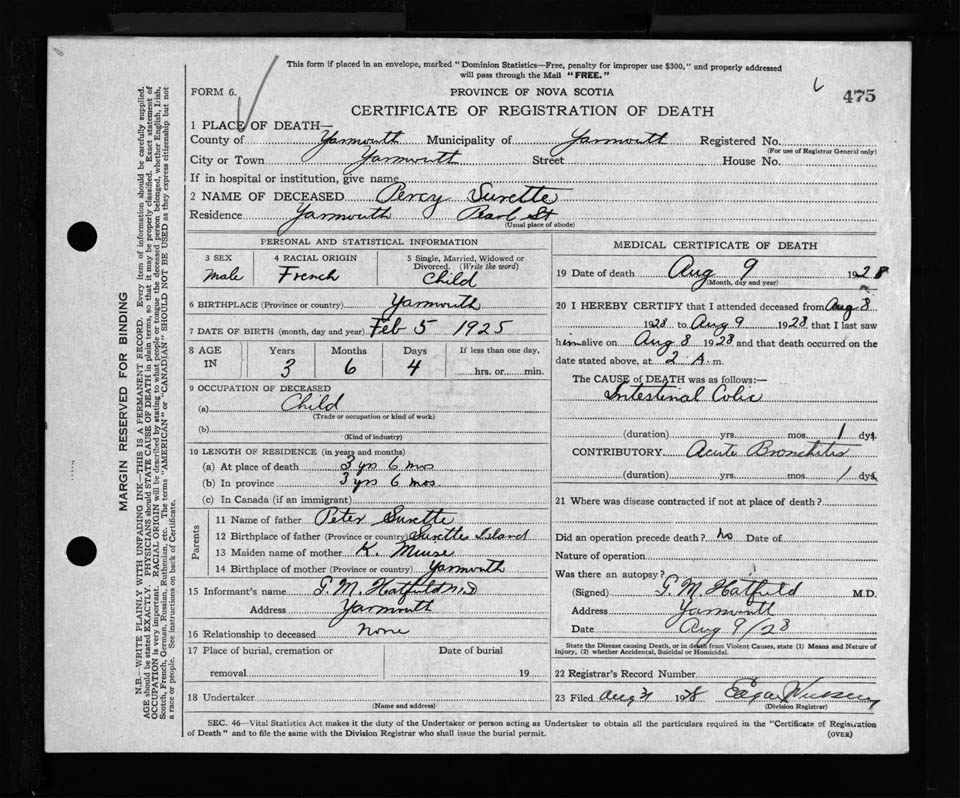 This form if placed in an envelope, marked "Dominion Statistics—Free, penalty for improper use $300," and properly addressed
will pass through the Mail "FREE."
FORM 6.
PROVINCE OF NOVA SCOTIA
475
CERTIFICATE OF REGISTRATION OF DEATH
1 PLACE OF DEATH—
County of Yarmouth Municipality of Yarmouth Registered No.
(For use of Registrar General only)
City or Town Yarmouth Street House No.
If in hospital or institution, give name
2 NAME OF DECEASED Percy Surette
Residence Yarmouth Pearl St
(Usual place of abode)
PERSONAL AND STATISTICAL INFORMATION
3 SEX 4 RACIAL ORIGIN 5 Single, Married, Widowed or
Divorced. (Write the word)
male French Child
6 BIRTHPLACE (Province or country) Yarmouth
7 DATE OF BIRTH (month, day and year) Feb 5 1925
8 AGE Years Months Days If less than one day,
IN 3 6 4 hrs. or min.
9 OCCUPATION OF DECEASED
(a) Child
(Trade or occupation or kind of work)
(b)
(Kind of industry)
10 LENGTH OF RESIDENCE (in years and months)
(a) At place of death 3 yrs 6 mos
(b) In province 3 yrs 6 mos.
(c) In Canada (if an immigrant)
Parents
11 Name of father Peter Surette
12 Birthplace of father (Province or country) Surettes Island
13 Maiden name of mother K. Meuse
14 Birthplace of mother (Province or country) Yarmouth
15 Informant's name G. M. Hatfield M.D
Address Yarmouth
16 Relationship to deceased none
17 Place of burial, cremation or Date of burial
removal 19
18 Undertaker
(Name and address)
MEDICAL CERTIFICATE OF DEATH
19 Date of death Aug 9 1928
(Month, day and year)
20 I HEREBY CERTIFY that I attended deceased from Aug 8
1928 to Aug 9 1928 that I last saw
him alive on Aug 8 1928 and that death occurred on the
date stated above, at 2 A. m.
The CAUSE of DEATH was as follows:—
Intestinal Colic
(duration) yrs. mos. 1 dys.
CONTRIBUTORY Acute Bronchitis
(duration) yrs. mos. 1 dys.
21 Where was disease contracted if not at place of death?
Did an operation precede death? No Date of
Nature of operation
Was there an autopsy?
(Signed) G. M. Hatfield M.D.
Address Yarmouth
Date Aug 9/28
State the Disease causing Death, or in death from Violent Causes, state (1) Means and Nature of
Injury, (2) whether Accidental, Suicidal or Homicidal.
22 Registrar's Record Number
23 Filed Aug 31 1928 Edgar
(Division Registrar)
SEC. 46—Vital Statistics Act makes it the duty of the Undertaker or person acting as Undertaker to obtain all the particulars required in the "Certificate of Registration
of Death" and to file the same with the Division Registrar who shall issue the burial permit.
(OVER)
MARGIN RESERVED FOR BINDING
N.B.—WRITE PLAINLY WITH UNFADING INK—THIS IS A PERMANENT RECORD. Every item of information should be carefully supplied.
AGE should be stated EXACTLY. PHYSICIANS should STATE CAUSE OF DEATH in plain terms, so that it may be properly classified. Exact statement of
OCCUPATION is very important. RACIAL ORIGIN will be described by stating to what people or tongue the deceased person belonged, whether English, Irish,
Scotch, French, German, Russian, Ruthenian, etc. The terms "AMERICAN" or "CANADIAN" SHOULD NOT BE USED as they express citizenship but not
a race or people. See instructions on back of Certificate.